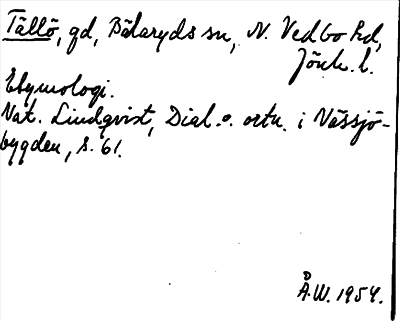 Tällö, gd, Bälaryds sn, N. Vedbo hd,
Jönk. l.
Etymologi.
Nat. Lindqvist, Dial. o. ortn. i Nässjö-
bygden, s. 61.
Å.W. 1954.